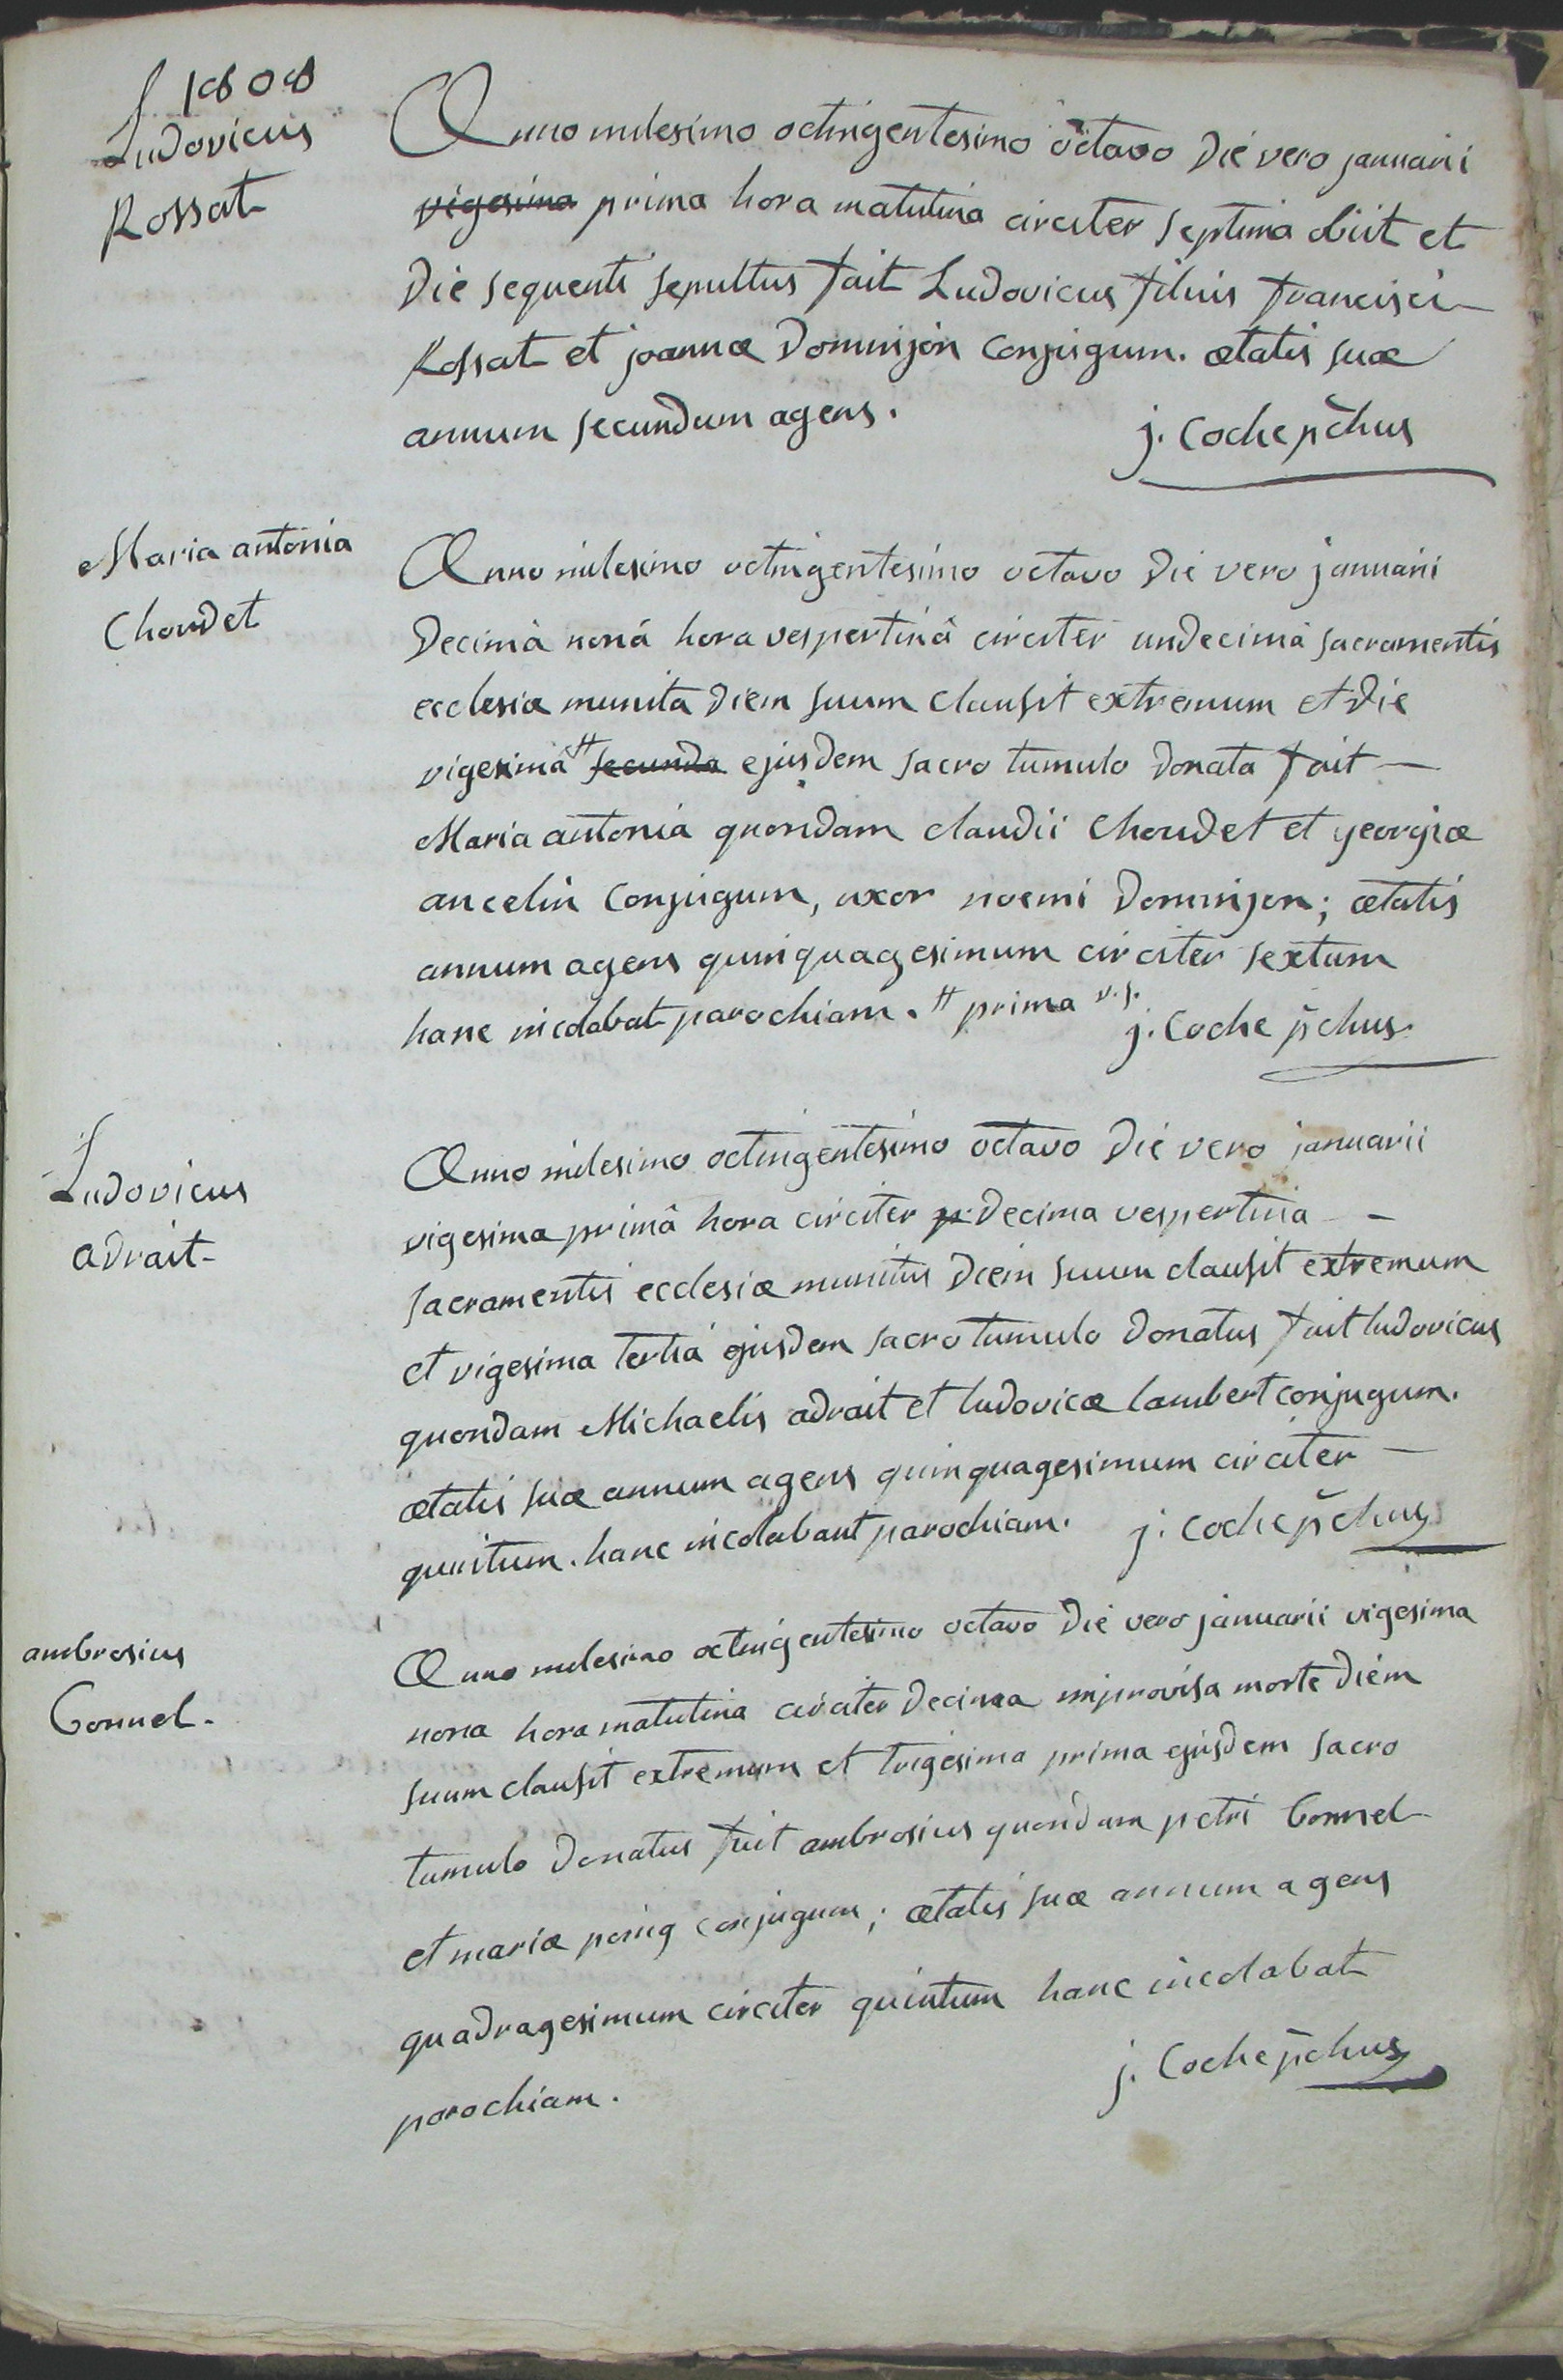 1808
Ludovicus
Rossat
Anno milesimo octingentesimo octavo die vero januarii
vigesima prima hora matutina circiter septima obiit et
die sequenti sepultus fuit Ludovicus filius francisci
Rossat et joannæ Dominjon conjugum. ætatis suæ
annum secundum agens.
j. Coche pchus
Maria antonia
Choudet
Anno milesimo octingentesimo octavo die vero januarii
decimâ nonâ hora vespertinâ circiter undecimâ sacramentis
ecclesiæ munita diem suum clausit extremum et die
vigesimâ # secunda ejusdem sacro tumulo donata fuit —
Maria antonia quondam claudii choudet et georgiæ
ancelin conjugum, uxor noemi Dominjon; ætatis
annum agens quinquagesimum circiter sextum
hanc incolabat parochiam. # prima
j. Coche pchus
Ludovicus
adrait
Anno milesimo octingentesimo octavo die vero januarii
vigesima primâ hora circiter decima vespertina —
sacramentis ecclesiæ munitus diem suum clausit extremum
et vigesima tertiâ ejusdem sacro tumulo donatus fuit ludovicus
quondam Michaelis adrait et ludovicæ lambert conjugum.
ætatis suæ annum agens quinquagesimum circiter —
quintum. hanc incolabant parochiam. j. Coche pchus
ambrosius
Connel.
Anno milesimo octingentesimo octavo die vero januarii vigesima
nona hora matutina circiter decima improvisa morte diem
suum clausit extremum et trigesima prima ejusdem sacro
tumulo donatus fuit ambrosius quondam petri Connel
et mariæ conjugum; ætatis suæ annum agens
quadragesimum circiter quintum hanc incolabat
parochiam.
j. Coche pchus